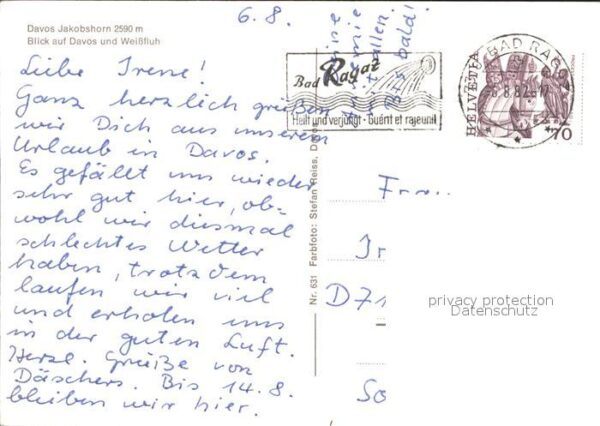 Davos Jakobshorn 2590 m
Blick auf Davos und Weißfluh
6.8.
Liebe Irene!
Ganz herzlich grüßen
wir Dich aus unserem
Urlaub in Davos.
Es gefällt uns wieder
sehr gut hier, ob-
wohl wir diesmal
schlechtes Wetter
haben, trotzdem
laufen wir viel
und erholen uns
in der guten Luft.
Herzl. Grüße von
Däschers. Bis 14.8.
bleiben wir hier.
Bis bald!
Bad Ragaz
Heilt und verjüngt · Guérit et rajeunit
BAD RAGAZ
6.8.82
HELVETIA
70
Nr. 631 Farbfoto: Stefan Reiss, Davos
Frau
Ir
D 71
So
privacy protection
Datenschutz